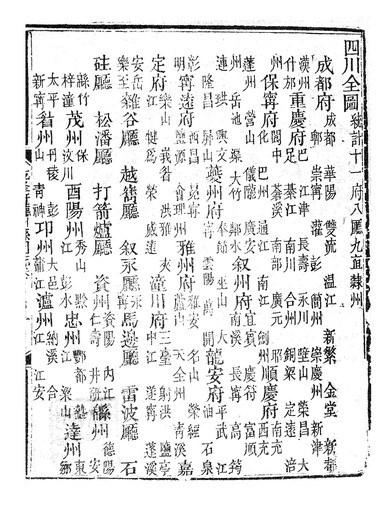 四川全圖 統計十一府八廳九直隷州
成都府 成都 華陽 雙流 溫江 新繁 金堂 新都 郫 崇寧 灌 彭 簡州 崇慶州 新津
漢州 什邡 重慶府 巴 江津 長壽 永川 璧山 榮昌 大足 綦江 南川 合川 銅梁 定遠 涪
州 保寧府 閬中 蒼溪 南部 廣元 昭化 巴州 通江 南江 劍州 順慶府 南充 西充
蓬州 營山 儀隴 廣安州 岳池 渠 大竹 鄰水 叙州府 宜賓 慶符 富順 南溪 長寧 高 筠
連 珙 興文 隆昌 屏山 夔州府 奉節 巫山 大 雲陽 萬 開 龍安府 平武 江油 石泉
彰明 寧遠府 西昌 冕寧 會理州 雅州府 雅安 名山 滎經 蘆山 天全州 清溪 嘉
定府 樂山 峨眉 洪雅 夾江 犍為 榮 威遠 潼川府 三臺 射洪 鹽亭 中江 遂寧 蓬溪
安岳 樂至 雜谷廳 越嶲廳 叙永廳 永寧 馬邊廳 雷波廳 石
砫廳 松潘廳 打箭爐廳 資州 資陽 內江 仁壽 井研 綿州 德陽 安
綿竹 梓潼 茂州 汶川 保 酉陽州 秀山 黔江 彭水 忠州 酆都 墊江 梁山 達州 東鄉
太平 新寧 眉州 丹稜 彭山 青神 邛州 大邑 蒲江 瀘州 納溪 合江 江安